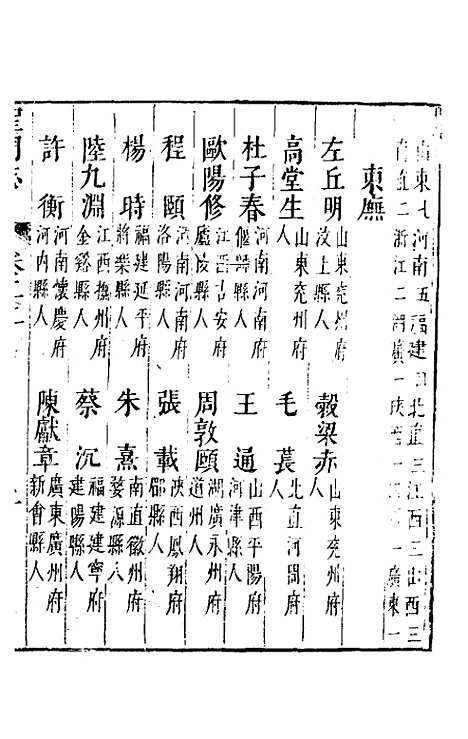 山東七河南五福建四北直三江西三山西三
南直二浙江二湖廣一陝西一四川一廣東一
東廡
左丘明 山東兗州府汶上縣人 穀梁赤 山東兗州府人
高堂生 山東兗州府人 毛萇 北直河間府人
杜子春 河南河南府偃師縣人 王通 山西平陽府河津縣人
歐陽修 江西吉安府廬陵縣人 周敦頤 湖廣永州府道州人
程頤 河南河南府洛陽縣人 張載 陝西鳳翔府郿縣人
楊時 福建延平府將樂縣人 朱熹 南直徽州府婺源縣人
陸九淵 江西撫州府金谿縣人 蔡沉 福建建寧府建陽縣人
許衡 河南懷慶府河內縣人 陳獻章 廣東廣州府新會縣人
聖門志 卷二